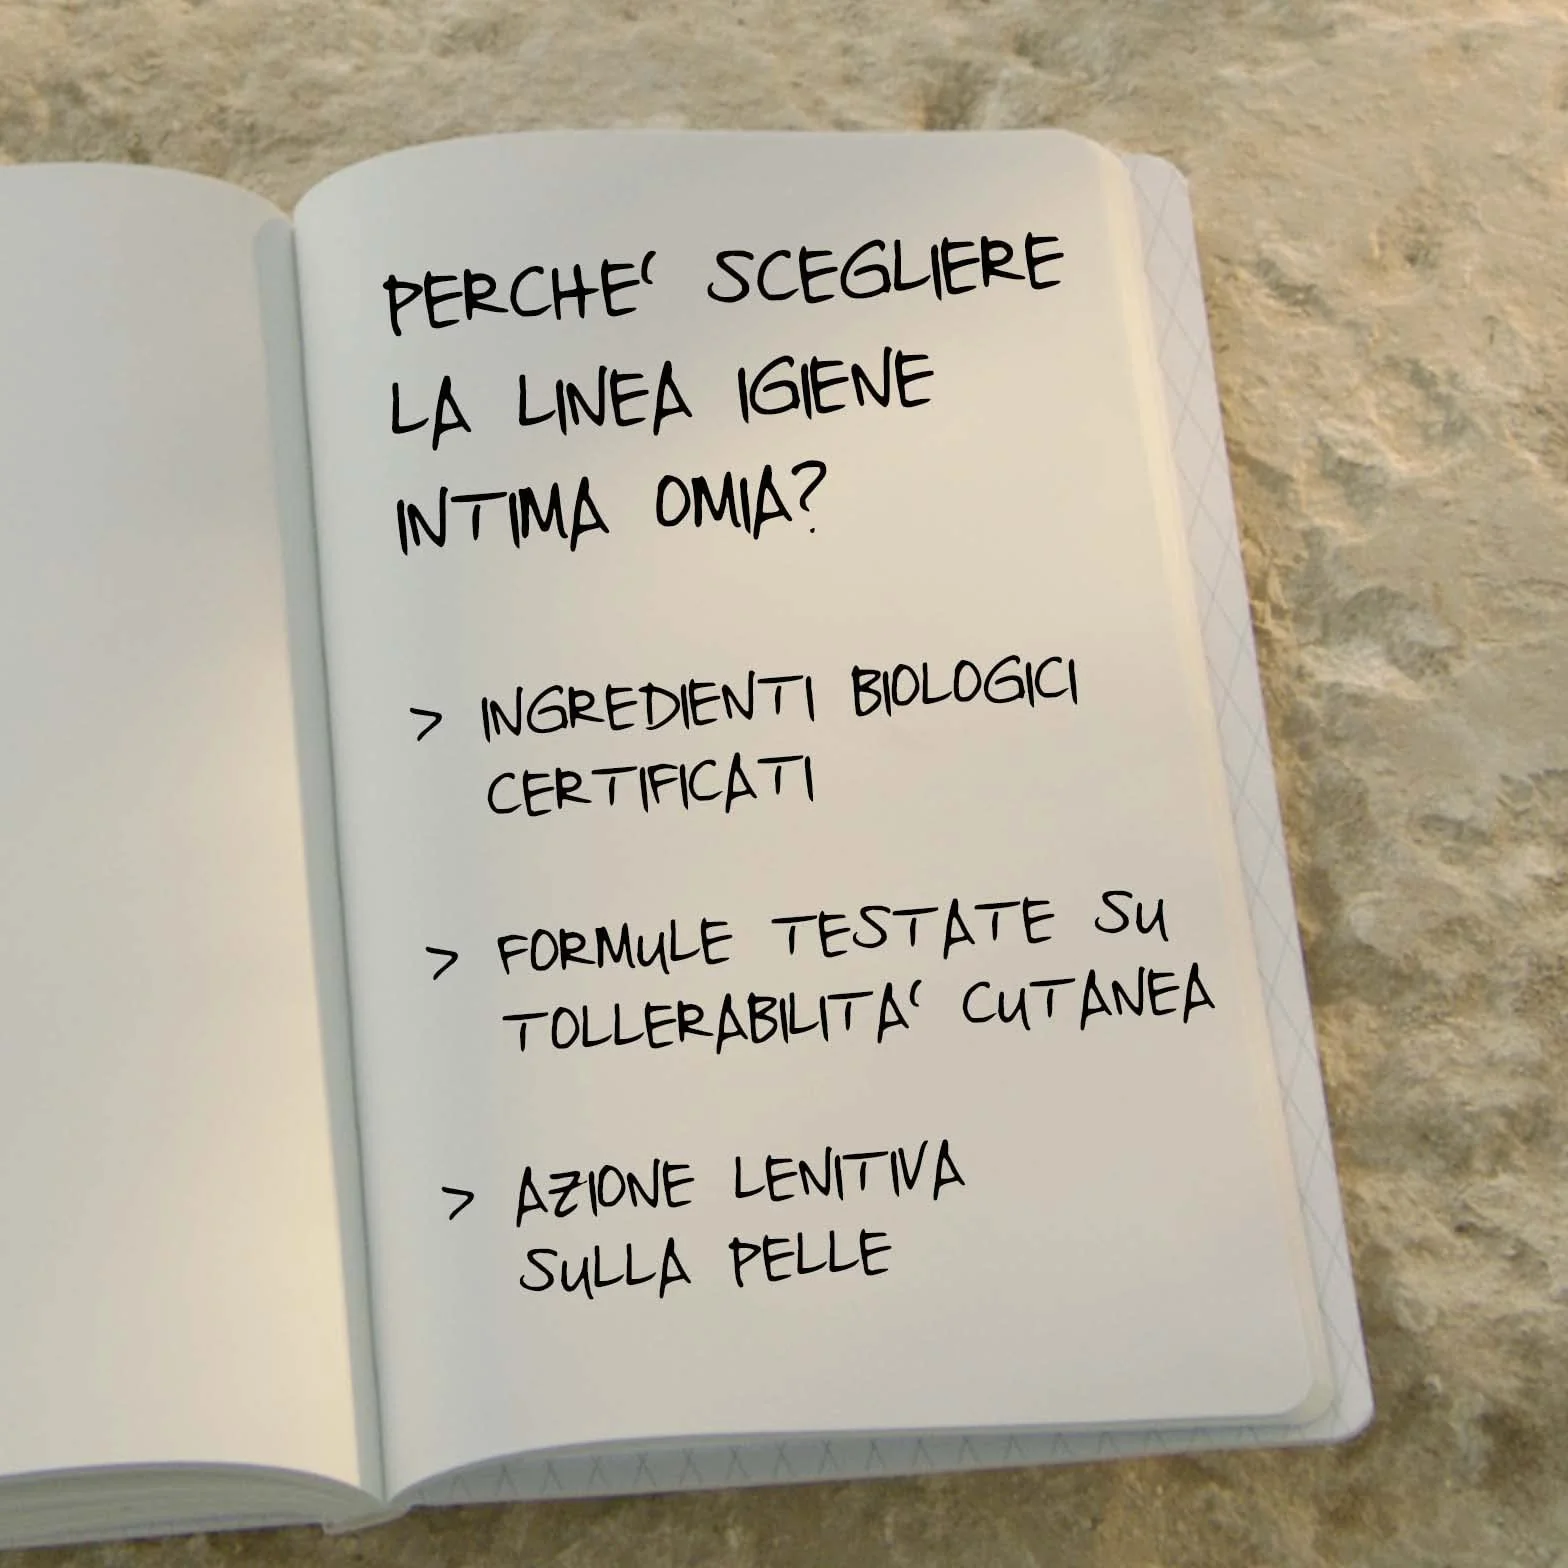 PERCHE' SCEGLIERE
LA LINEA IGIENE
INTIMA OMIA?
> INGREDIENTI BIOLOGICI
CERTIFICATI
> FORMULE TESTATE SU
TOLLERABILITA' CUTANEA
> AZIONE LENITIVA
SULLA PELLE